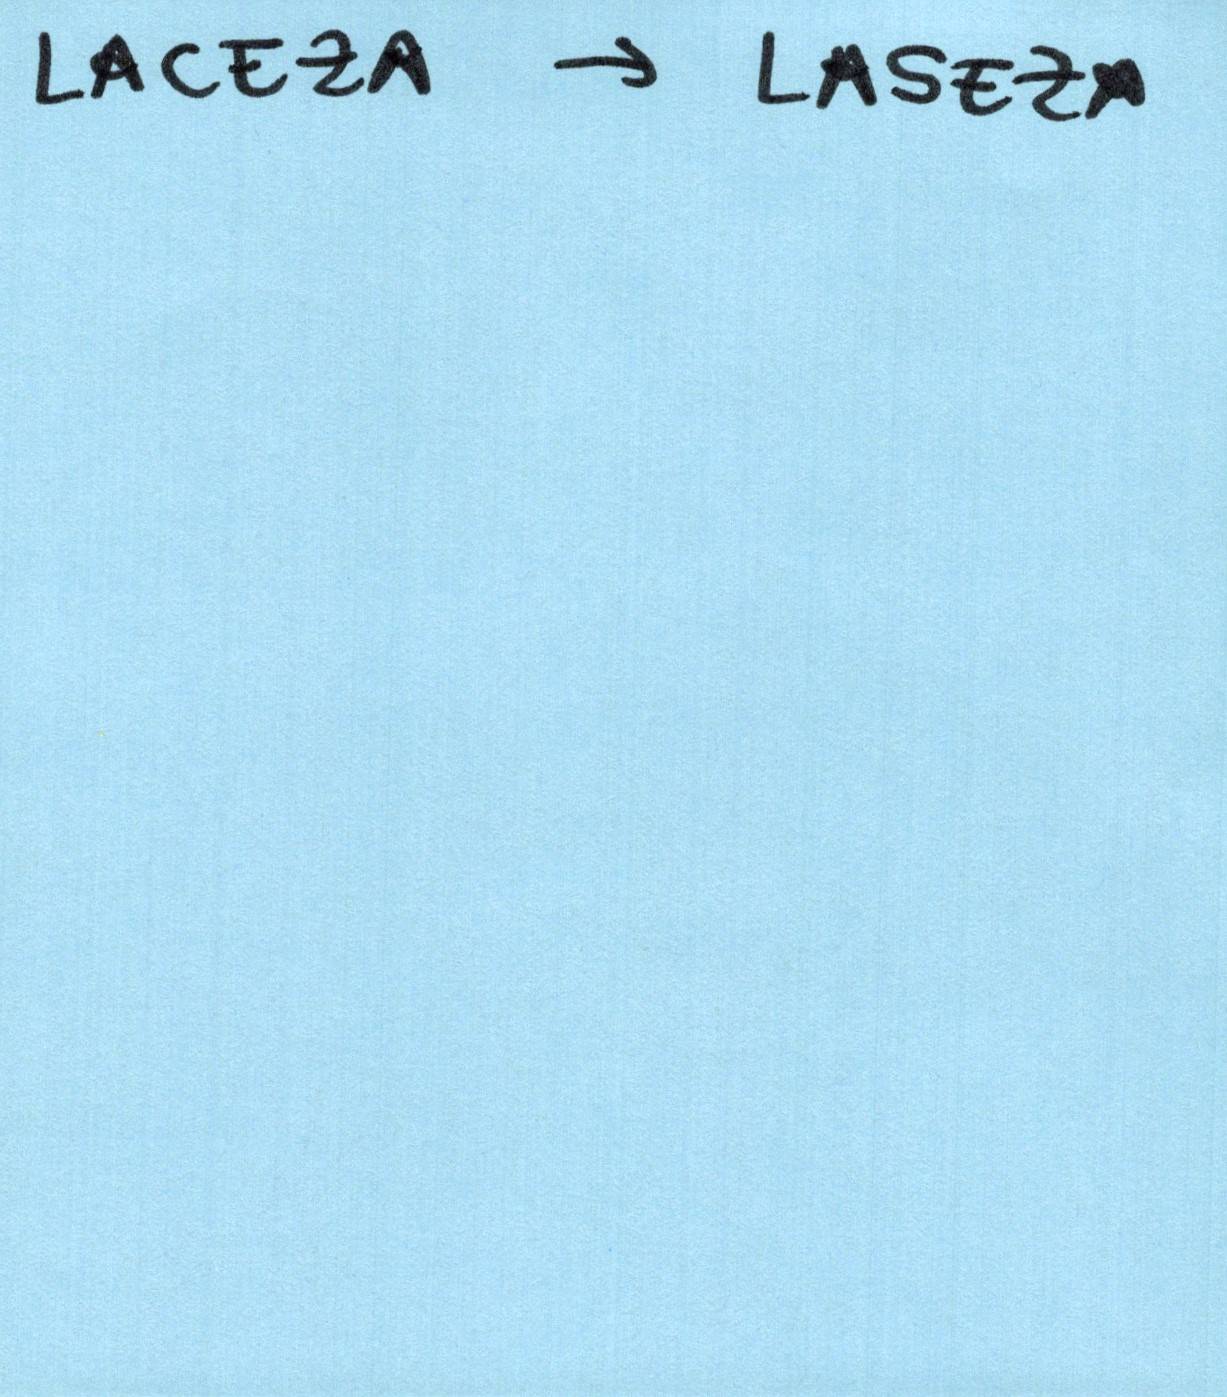 LACEZA → LASEZA